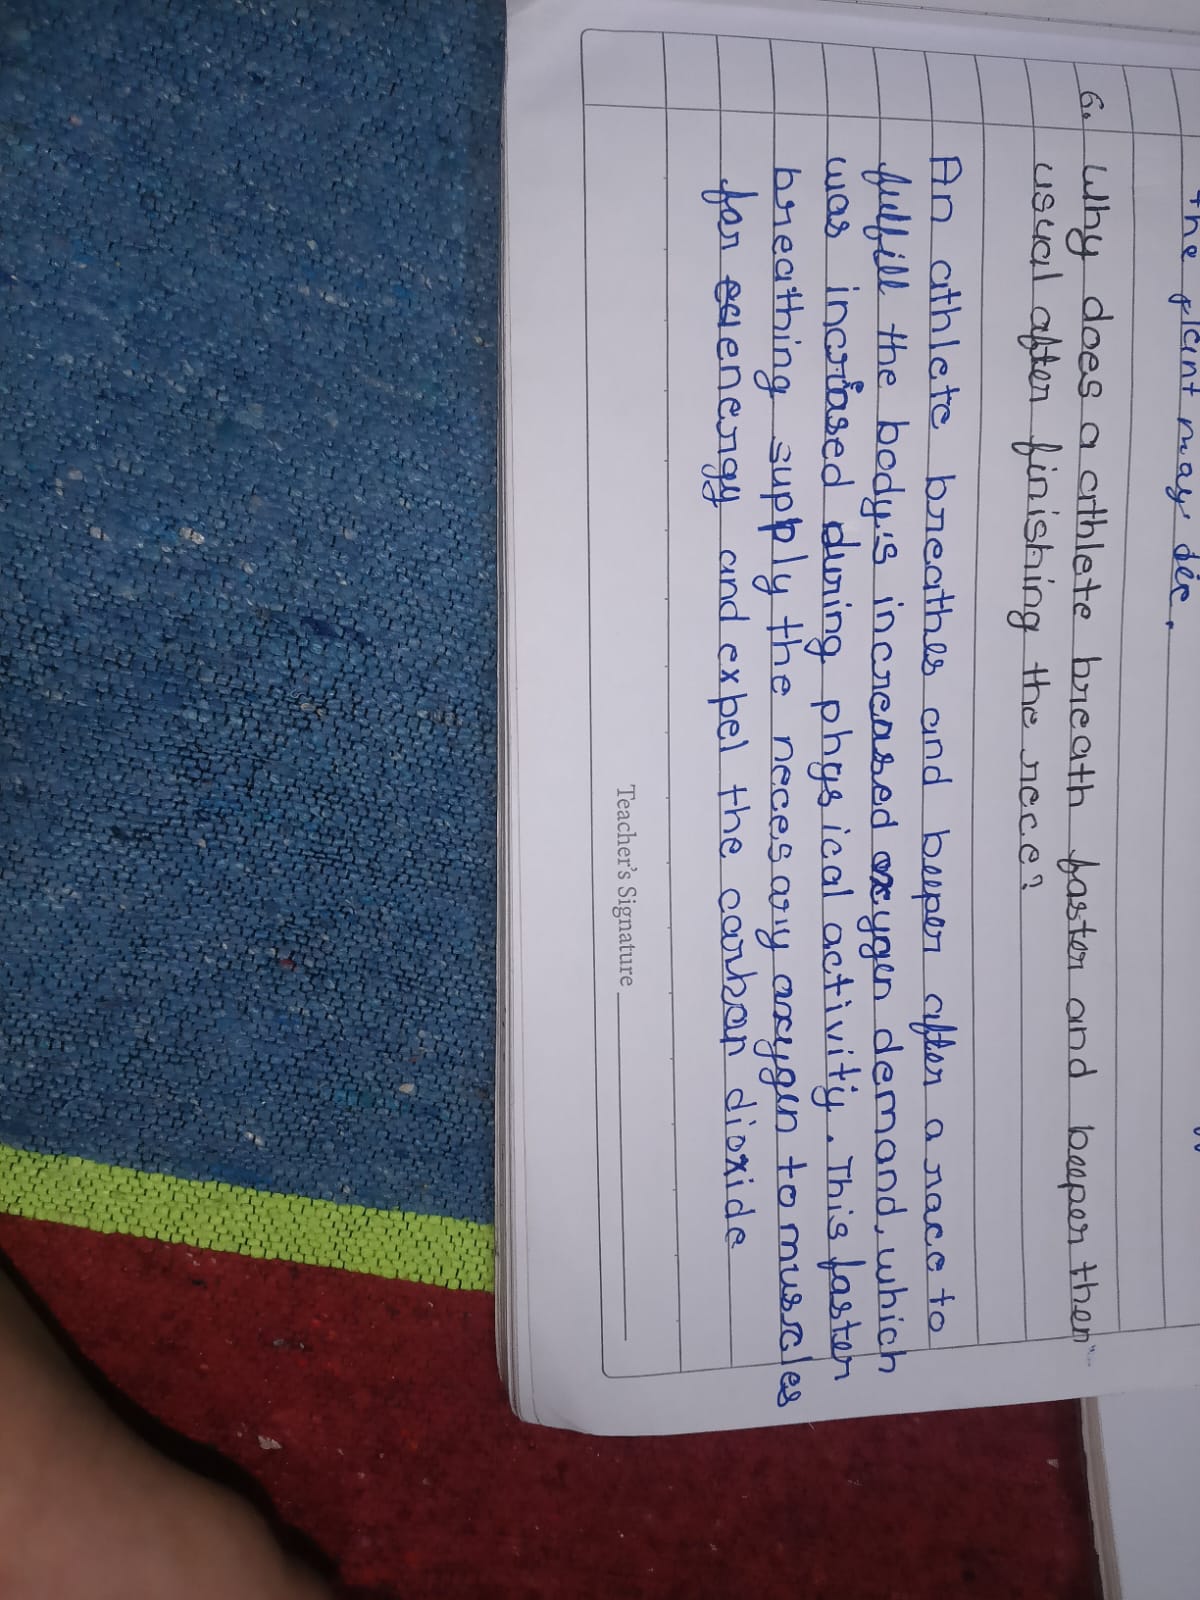 the plant may die.
6. Why does a athlete breath faster and beeper then
usual after finishing the race?
An athlete breathes and beeper after a race to
fulfill the body's increased oxygen demand, which
was increased during physical activity. This faster
breathing supply the necesary oxygen to muscles
for enengy and expel the carbon dioxide
Teacher's Signature